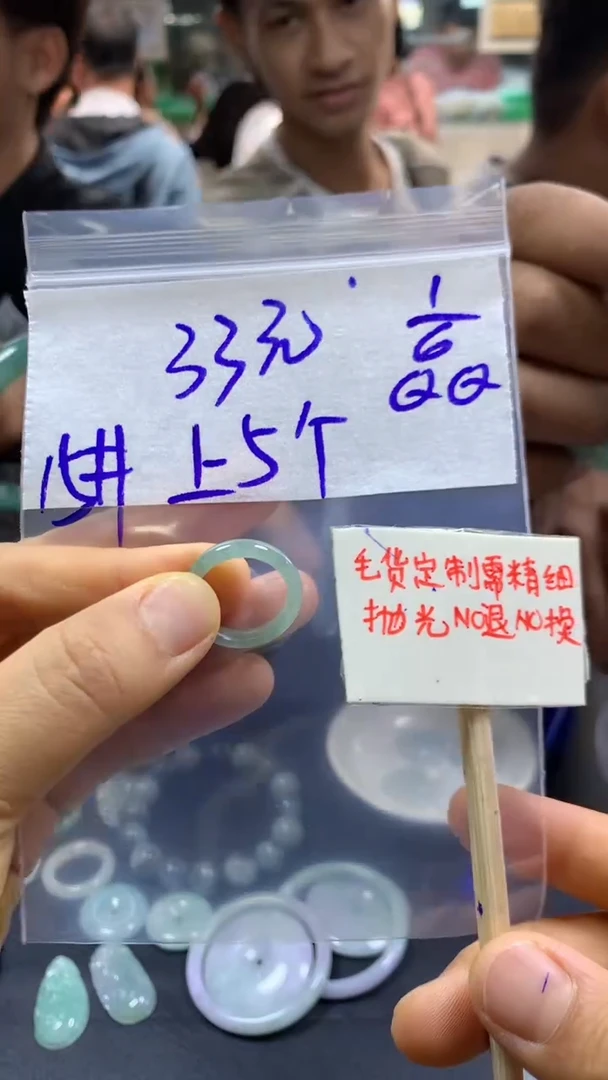 33元
拼上5个
毛货定制需精细
抛光NO退NO换